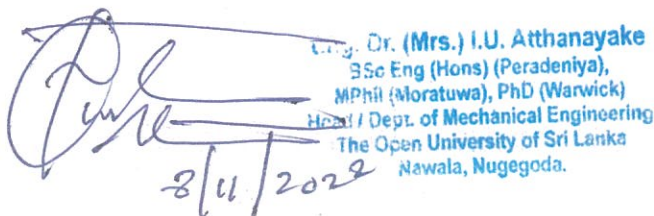 Eng. Dr. (Mrs.) I.U. Atthanayake
BSc Eng (Hons) (Peradeniya),
MPhil (Moratuwa), PhD (Warwick)
Head / Dept. of Mechanical Engineering
The Open University of Sri Lanka
Nawala, Nugegoda.
8/11/2022